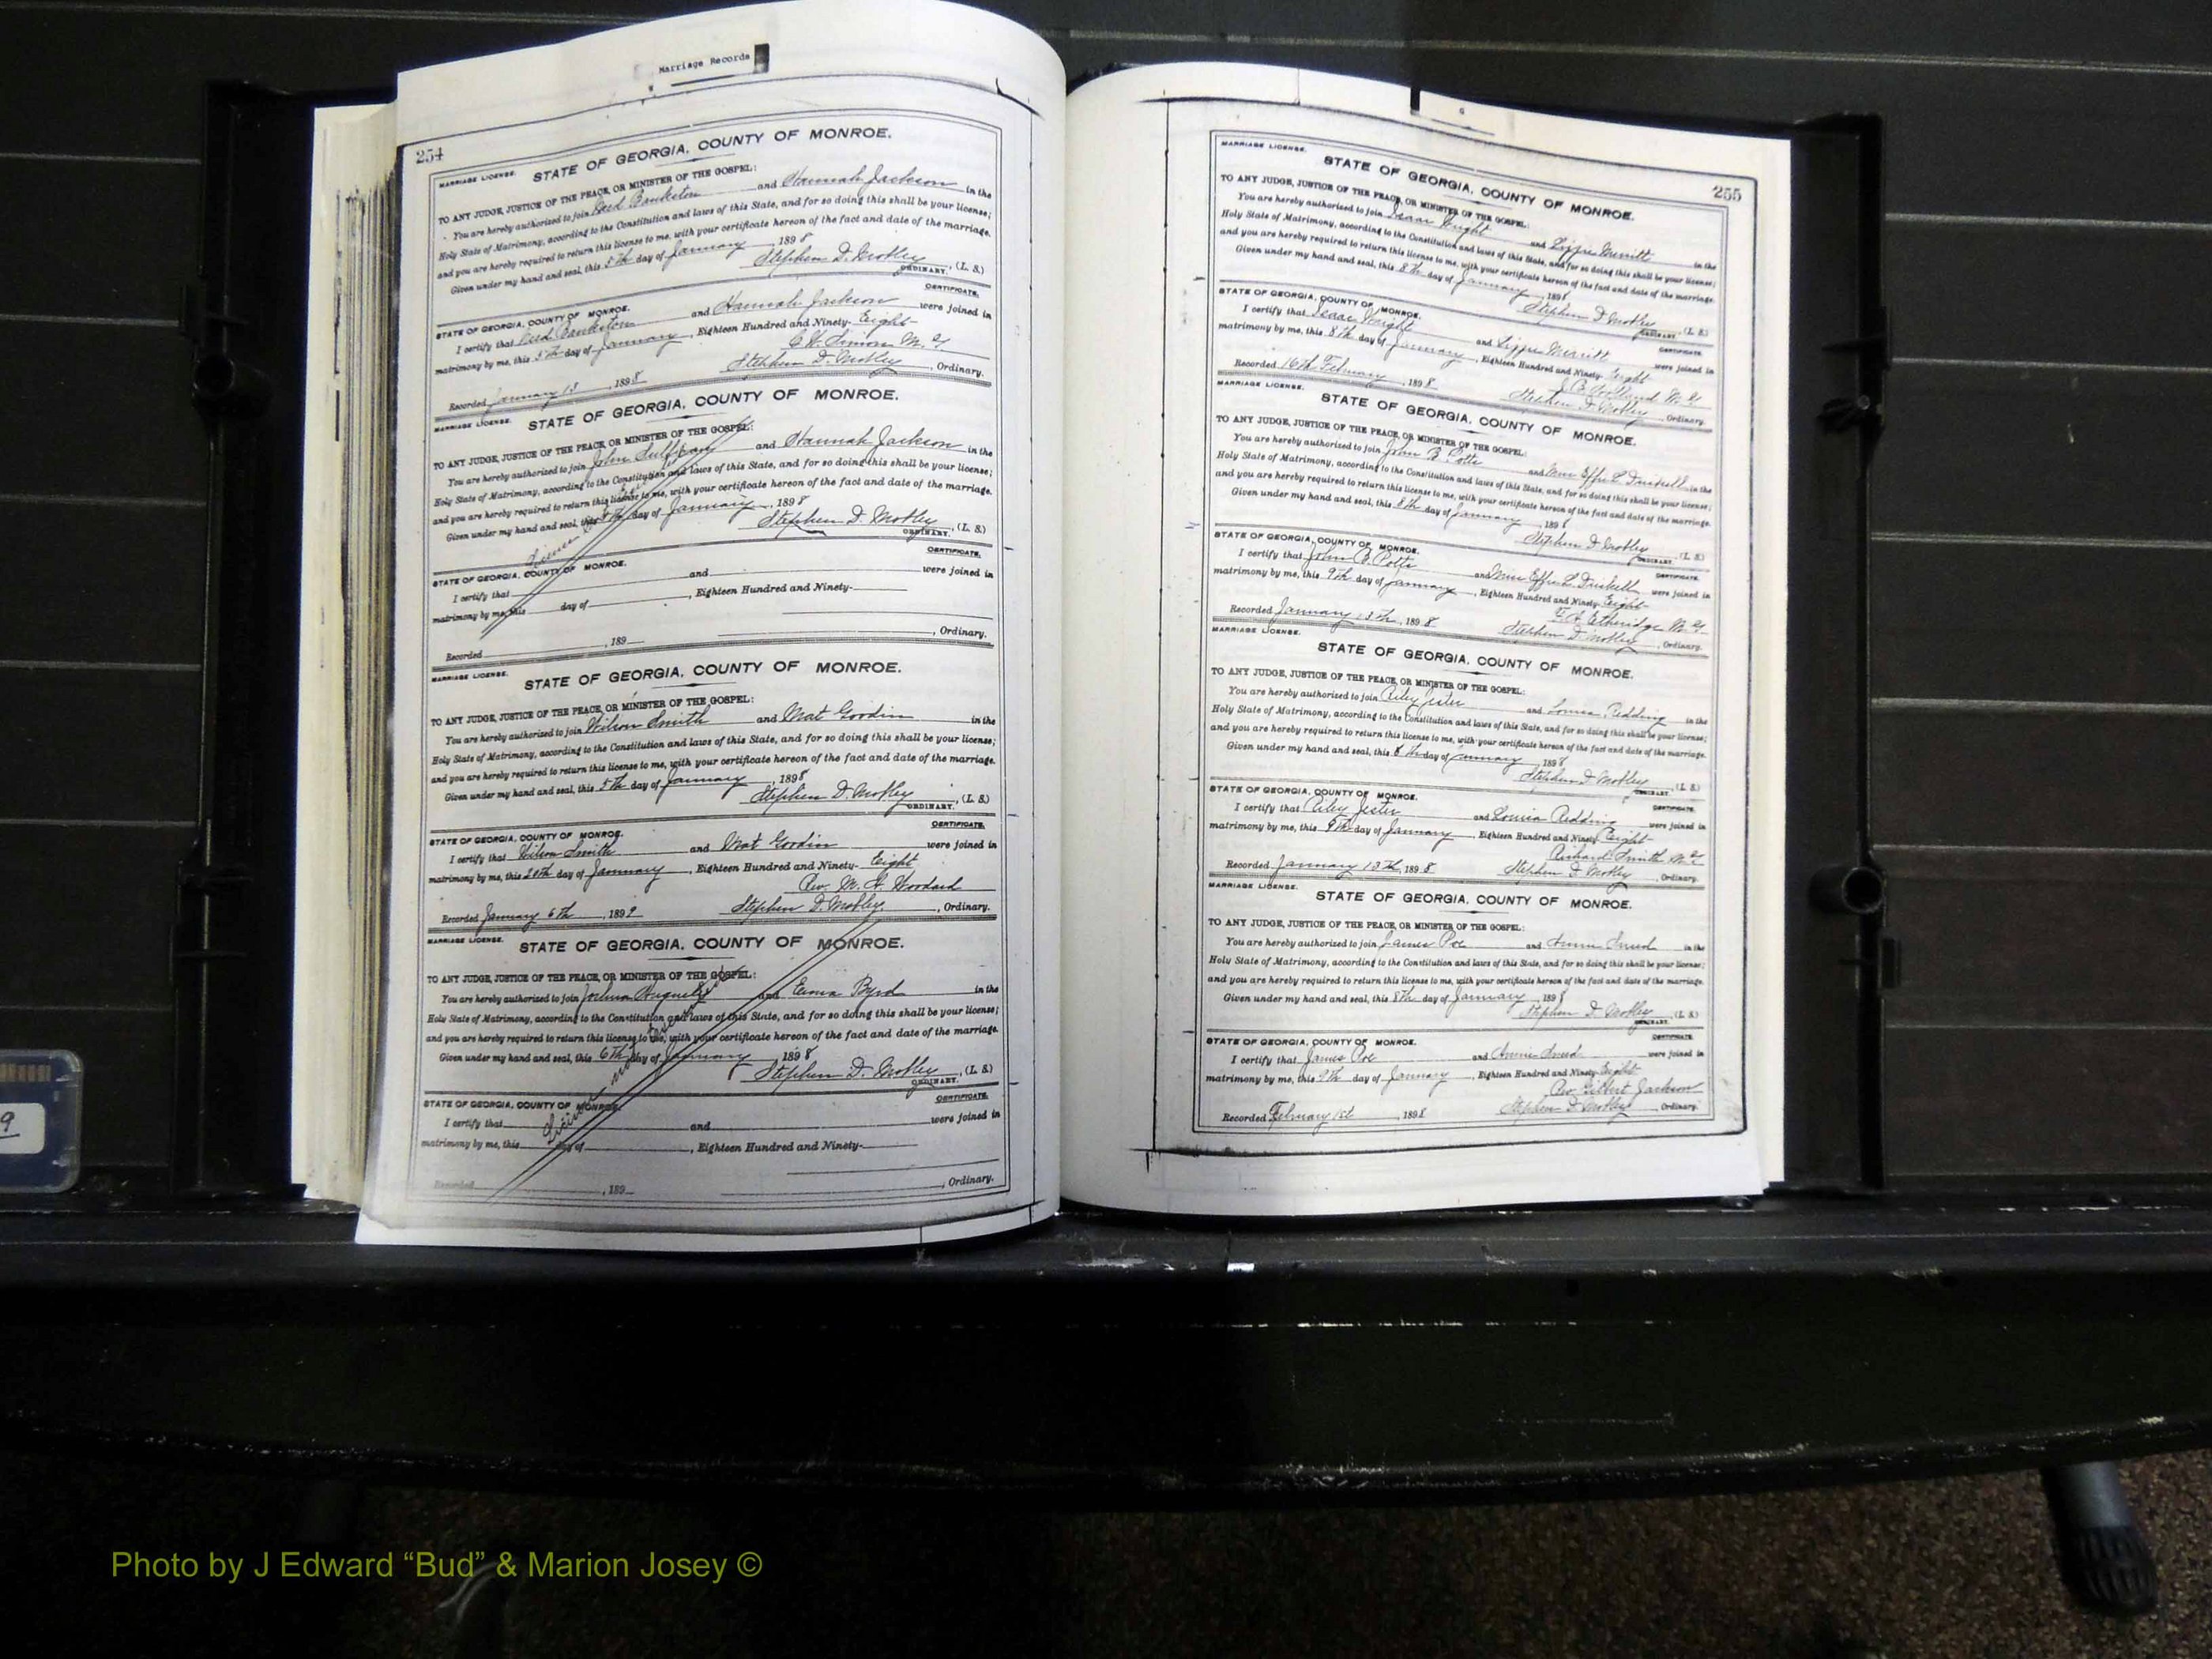 Marriage Records
254
MARRIAGE LICENSE. STATE OF GEORGIA, COUNTY OF MONROE.
TO ANY JUDGE, JUSTICE OF THE PEACE, OR MINISTER OF THE GOSPEL:
You are hereby authorized to join Bankston and Hannah Jackson in the
Holy State of Matrimony, according to the Constitution and laws of this State, and for so doing this shall be your license;
and you are hereby required to return this license to me, with your certificate hereon of the fact and date of the marriage.
Given under my hand and seal, this 5th day of January, 1898
Stephen D. Mobley, (L. S.)
ORDINARY.
CERTIFICATE.
STATE OF GEORGIA, COUNTY OF MONROE.
I certify that Bankston and Hannah Jackson were joined in
matrimony by me, this 5th day of January, Eighteen Hundred and Ninety-Eight
M. G.
Recorded January 13, 1898 Stephen D. Mobley, Ordinary.
MARRIAGE LICENSE. STATE OF GEORGIA, COUNTY OF MONROE.
TO ANY JUDGE, JUSTICE OF THE PEACE, OR MINISTER OF THE GOSPEL:
You are hereby authorized to join John and Hannah Jackson in the
Holy State of Matrimony, according to the Constitution and laws of this State, and for so doing this shall be your license;
and you are hereby required to return this license to me, with your certificate hereon of the fact and date of the marriage.
Given under my hand and seal, this day of January, 1898
Stephen D. Mobley, (L. S.)
ORDINARY.
CERTIFICATE.
STATE OF GEORGIA, COUNTY OF MONROE.
I certify that and were joined in
matrimony by me, this day of , Eighteen Hundred and Ninety-
Recorded , 189 , Ordinary.
MARRIAGE LICENSE. STATE OF GEORGIA, COUNTY OF MONROE.
TO ANY JUDGE, JUSTICE OF THE PEACE, OR MINISTER OF THE GOSPEL:
You are hereby authorized to join Wilson Smith and Mat Goodin in the
Holy State of Matrimony, according to the Constitution and laws of this State, and for so doing this shall be your license;
and you are hereby required to return this license to me, with your certificate hereon of the fact and date of the marriage.
Given under my hand and seal, this 5th day of January, 1898
Stephen D. Mobley, (L. S.)
ORDINARY.
CERTIFICATE.
STATE OF GEORGIA, COUNTY OF MONROE.
I certify that Wilson Smith and Mat Goodin were joined in
matrimony by me, this day of January, Eighteen Hundred and Ninety-Eight
Rev. Woodard
Recorded January 6th, 1899 Stephen D. Mobley, Ordinary.
MARRIAGE LICENSE. STATE OF GEORGIA, COUNTY OF MONROE.
TO ANY JUDGE, JUSTICE OF THE PEACE, OR MINISTER OF THE GOSPEL:
You are hereby authorized to join Joshua and Byrd in the
Holy State of Matrimony, according to the Constitution and laws of this State, and for so doing this shall be your license;
and you are hereby required to return this license to me, with your certificate hereon of the fact and date of the marriage.
Given under my hand and seal, this 6th day of January, 1898
Stephen D. Mobley, (L. S.)
ORDINARY.
CERTIFICATE.
STATE OF GEORGIA, COUNTY OF MONROE.
I certify that and were joined in
matrimony by me, this day of , Eighteen Hundred and Ninety-
Recorded , 189 , Ordinary.
255
MARRIAGE LICENSE. STATE OF GEORGIA, COUNTY OF MONROE.
TO ANY JUDGE, JUSTICE OF THE PEACE, OR MINISTER OF THE GOSPEL:
You are hereby authorized to join Isaac Wright and Lizzie Merritt in the
Holy State of Matrimony, according to the Constitution and laws of this State, and for so doing this shall be your license;
and you are hereby required to return this license to me, with your certificate hereon of the fact and date of the marriage.
Given under my hand and seal, this 8th day of January, 1898
Stephen D Mobley, (L. S.)
ORDINARY.
CERTIFICATE.
STATE OF GEORGIA, COUNTY OF MONROE.
I certify that Isaac Wright and Lizzie Merritt were joined in
matrimony by me, this 8th day of January, Eighteen Hundred and Ninety-Eight
M. G.
Recorded 16th February, 1898 Stephen D Mobley, Ordinary.
MARRIAGE LICENSE. STATE OF GEORGIA, COUNTY OF MONROE.
TO ANY JUDGE, JUSTICE OF THE PEACE, OR MINISTER OF THE GOSPEL:
You are hereby authorized to join John B Potts and Miss Effie L in the
Holy State of Matrimony, according to the Constitution and laws of this State, and for so doing this shall be your license;
and you are hereby required to return this license to me, with your certificate hereon of the fact and date of the marriage.
Given under my hand and seal, this 8th day of January, 1898
Stephen D Mobley, (L. S.)
ORDINARY.
CERTIFICATE.
STATE OF GEORGIA, COUNTY OF MONROE.
I certify that John B. Potts and Miss Effie L were joined in
matrimony by me, this 9th day of January, Eighteen Hundred and Ninety-Eight
Etheridge M. G.
Recorded January 13th, 1898 Stephen D Mobley, Ordinary.
MARRIAGE LICENSE. STATE OF GEORGIA, COUNTY OF MONROE.
TO ANY JUDGE, JUSTICE OF THE PEACE, OR MINISTER OF THE GOSPEL:
You are hereby authorized to join Riley Jester and Redding in the
Holy State of Matrimony, according to the Constitution and laws of this State, and for so doing this shall be your license;
and you are hereby required to return this license to me, with your certificate hereon of the fact and date of the marriage.
Given under my hand and seal, this 8th day of January, 1898
Stephen D Mobley, (L. S.)
ORDINARY.
CERTIFICATE.
STATE OF GEORGIA, COUNTY OF MONROE.
I certify that Riley Jester and Redding were joined in
matrimony by me, this 9th day of January, Eighteen Hundred and Ninety-Eight
Richard Smith M G
Recorded January 13th, 1898 Stephen D Mobley, Ordinary.
MARRIAGE LICENSE. STATE OF GEORGIA, COUNTY OF MONROE.
TO ANY JUDGE, JUSTICE OF THE PEACE, OR MINISTER OF THE GOSPEL:
You are hereby authorized to join James Poe and Annie Sneed in the
Holy State of Matrimony, according to the Constitution and laws of this State, and for so doing this shall be your license;
and you are hereby required to return this license to me, with your certificate hereon of the fact and date of the marriage.
Given under my hand and seal, this 8th day of January, 1898
Stephen D Mobley, (L. S.)
ORDINARY.
CERTIFICATE.
STATE OF GEORGIA, COUNTY OF MONROE.
I certify that James Poe and Annie Sneed were joined in
matrimony by me, this 9th day of January, Eighteen Hundred and Ninety-Eight
Rev Gilbert Jackson
Recorded February 1st, 1898 Stephen D Mobley, Ordinary.
9
Photo by J Edward “Bud” & Marion Josey ©